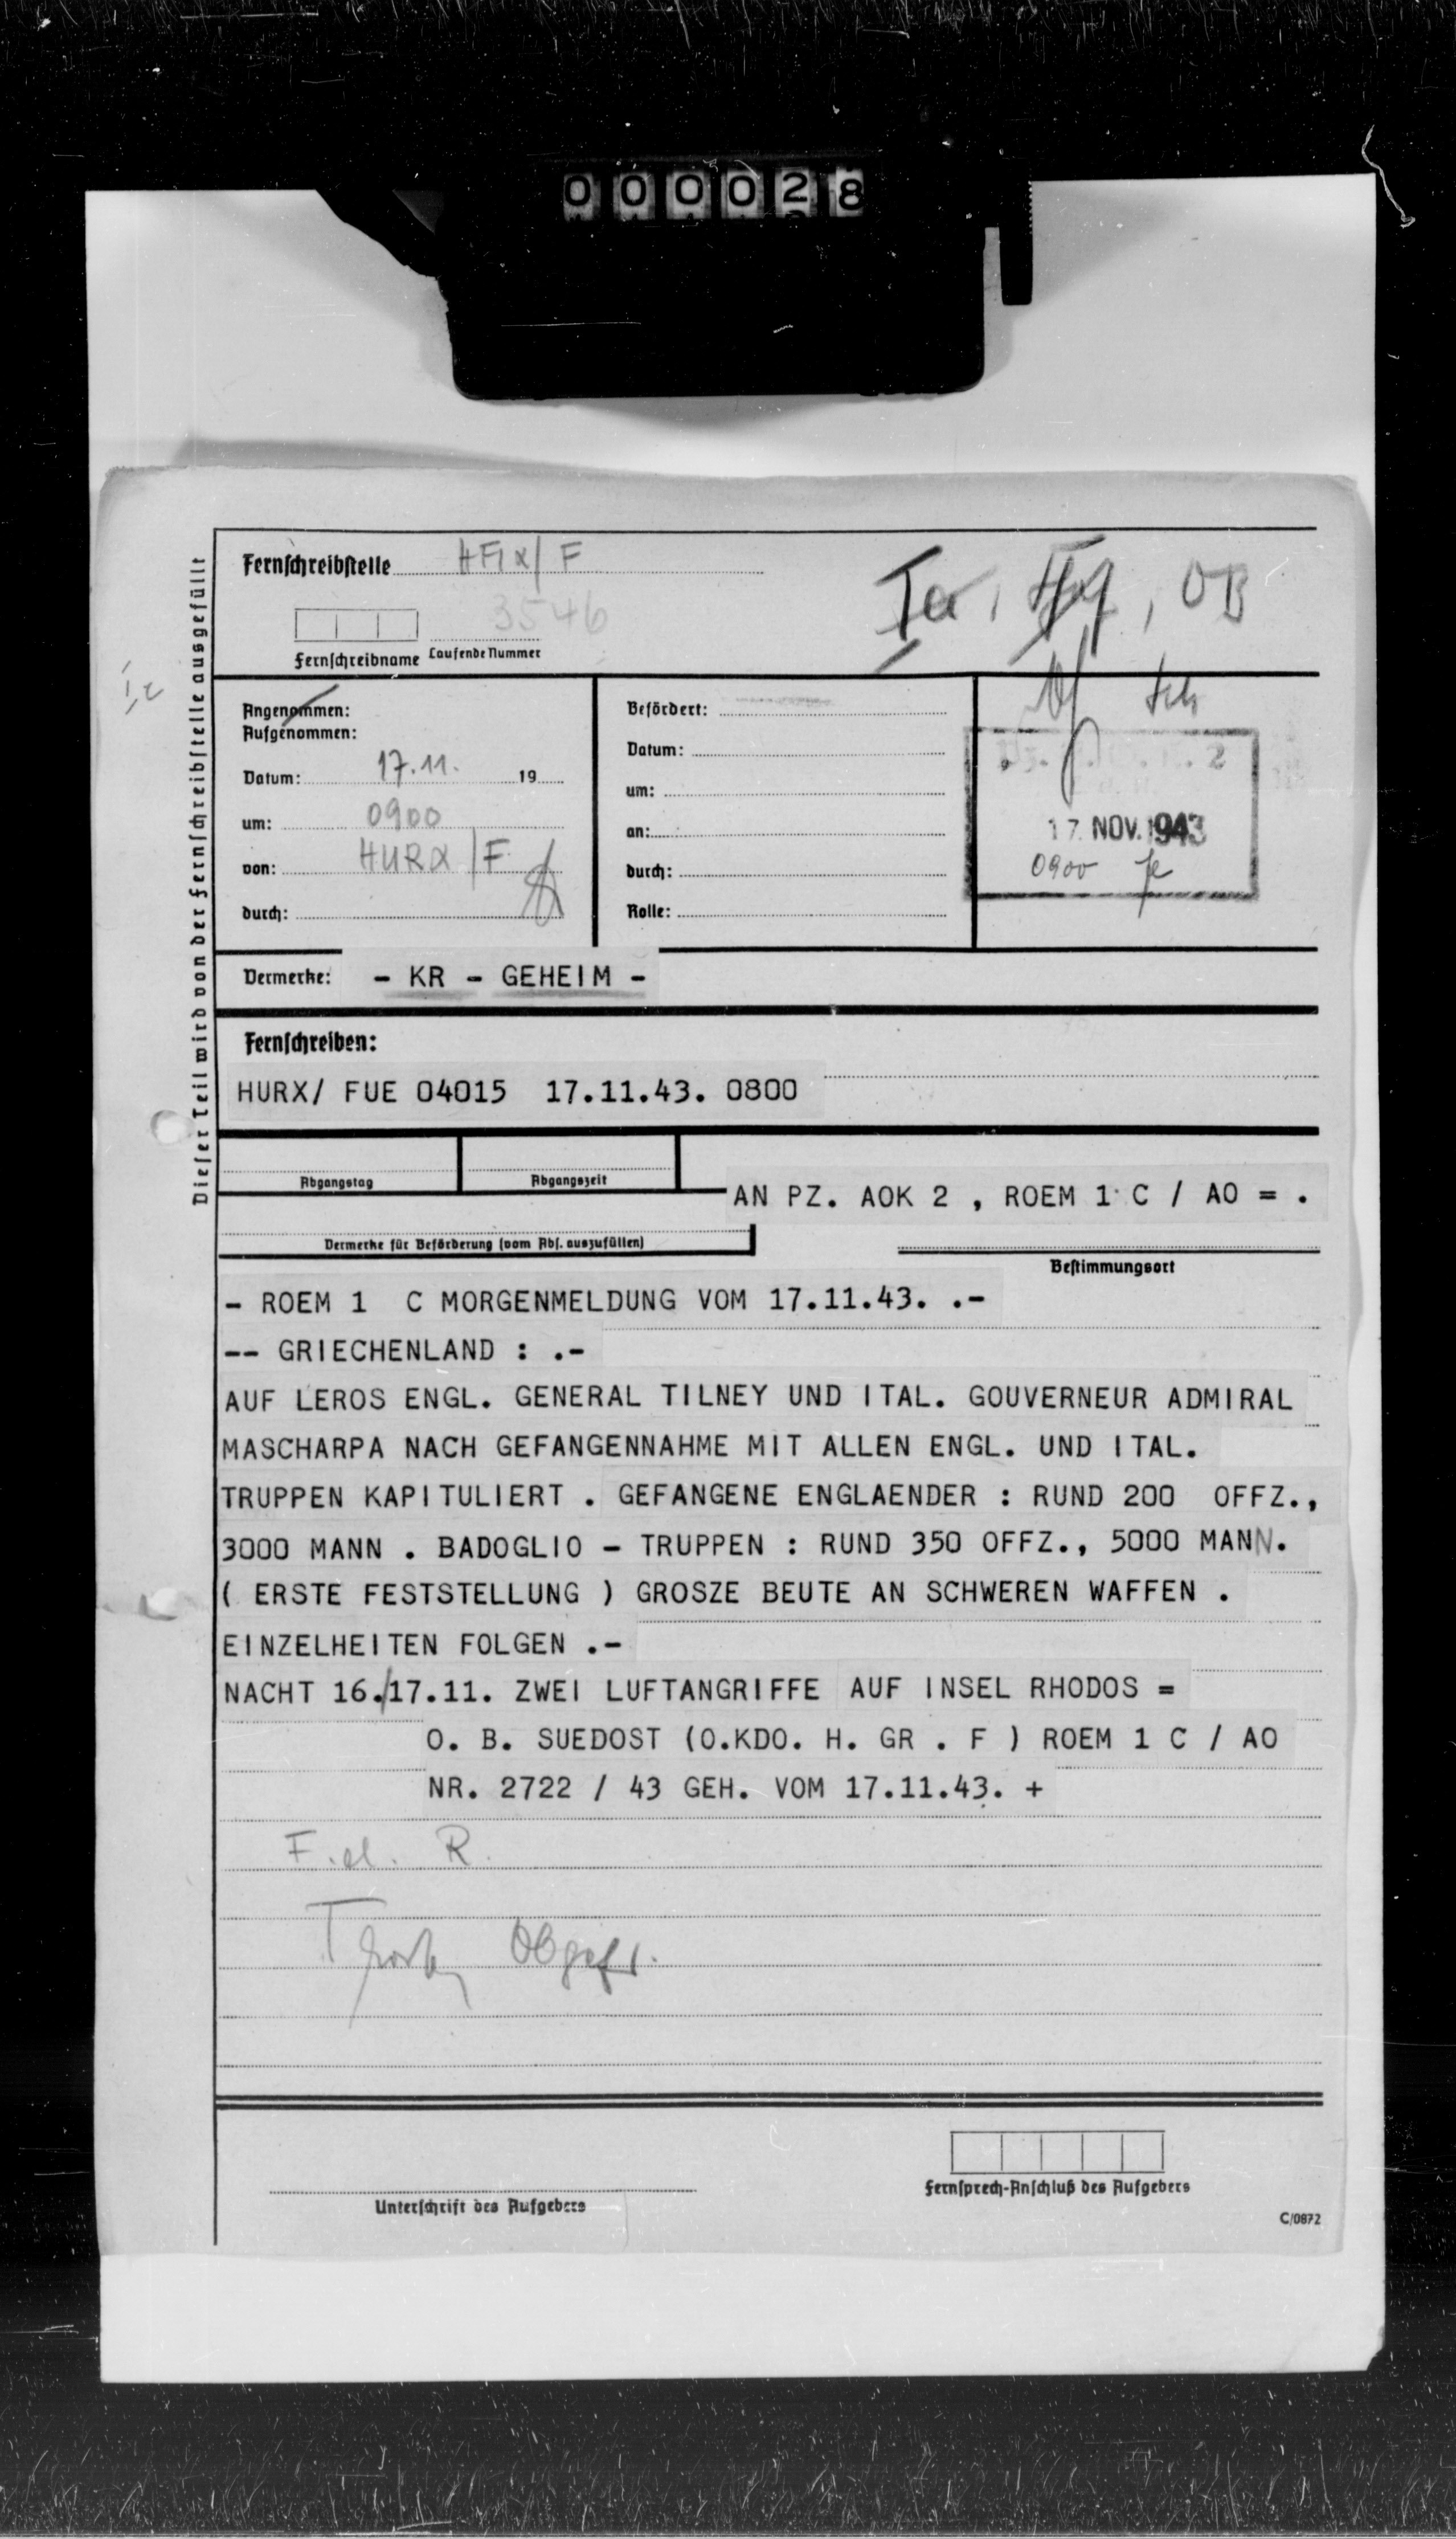 000028
Fernschreibstelle HFIX/F
3546
Fernschreibname Laufende Nummer
Ia, OB
Ic
Dieser Teil wird von der Fernschreibstelle ausgefüllt
Angenommen:
Aufgenommen:
Datum: 17.11. 19
um: 0900
von: HURX/F
durch:
Befördert:
Datum:
um:
an:
durch:
Rolle:
17. NOV. 1943
0900
Vermerke: - KR - GEHEIM -
Fernschreiben:
HURX/ FUE 04015 17.11.43. 0800
Abgangstag Abgangszeit
AN PZ. AOK 2 , ROEM 1 C / AO = .
Vermerke für Beförderung (vom Abs. auszufüllen)
Bestimmungsort
- ROEM 1 C MORGENMELDUNG VOM 17.11.43. .-
-- GRIECHENLAND : .-
AUF LEROS ENGL. GENERAL TILNEY UND ITAL. GOUVERNEUR ADMIRAL
MASCHARPA NACH GEFANGENNAHME MIT ALLEN ENGL. UND ITAL.
TRUPPEN KAPITULIERT . GEFANGENE ENGLAENDER : RUND 200 OFFZ.,
3000 MANN . BADOGLIO - TRUPPEN : RUND 350 OFFZ., 5000 MANN.
( ERSTE FESTSTELLUNG ) GROSZE BEUTE AN SCHWEREN WAFFEN .
EINZELHEITEN FOLGEN .-
NACHT 16./17.11. ZWEI LUFTANGRIFFE AUF INSEL RHODOS =
O. B. SUEDOST (O.KDO. H. GR . F ) ROEM 1 C / AO
NR. 2722 / 43 GEH. VOM 17.11.43. +
F.d. R.
Obgefr.
Unterschrift des Aufgebers
Fernsprech-Anschluß des Aufgebers
C/0872